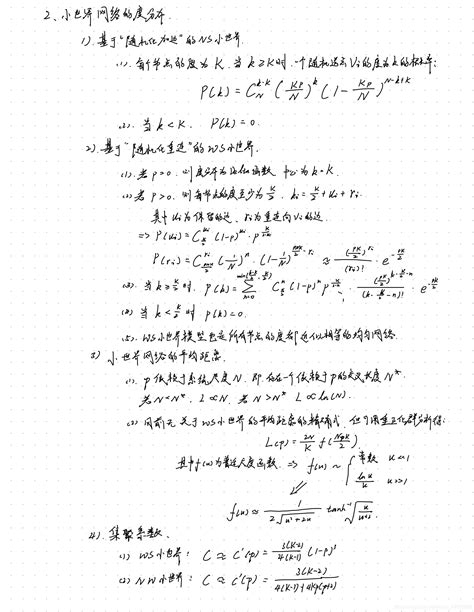 2、小世界网络的度分布.
1). 基于"随机化加边"的NS小世界.
(1). 每个节点的度为 K. 当 k≥K 时, 一个随机选取 Vi 的度为 k 的概率:
P(k) = C_N^{k-K} (Kp/N)^k (1 - Kp/N)^{N-k+K}
(2). 当 k<K, P(k)=0.
2). 基于"随机化重连"的WS小世界.
(1). 若 p=0, 则度分布为 函数 中心为 k=K.
(2) 若 p>0, 则每节点的度至少为 K/2, ki = K/2 + ui + ri.
其中 ui 为保留的边, ri 为重连向 Vi 的边.
=> P(ui) = (1-p)^{ui} · p
P(ri) = (1/N)^{ri} · (1-1/N) ≈ (pK/2)^{ri}/(ri)! · e^{-pK/2}
(3). 当 k≥K/2 时, P(k) = Σ_{n=0} (1-p)^n p · (pK/2)^{k-K/2-n}/(k-K/2-n)! · e^{-pK/2}
(4) 当 k<K/2 时 P(k)=0.
(5). WS小世界模型也是所有节点的度都近似相等的均匀网络.
3) 小世界网络的平均距离.
(1). p 依赖于系统尺度 N. 即存在一个依赖于 p 的交叉长度 N*.
若 N<N*, L∝N. 若 N>N* L∝ln(N).
(2) 目前无关于WS小世界的平均距离的精确式, 但可用重正化群分析得:
L(p) = 2N/K f(NpK/2)
其中 f(u) 为普适尺度函数. => f(u) ~ { 常数 u<<1
lnu/u u>>1
f(u) ≈ 1/(2√(u²+2u)) tanh⁻¹√(u/(u+2))
4). 集聚系数.
(1) WS小世界: C ≈ C'(p) = 3(K-2)/4(K-1) (1-p)³
(2) NW小世界: C ≈ C'(p) = 3(K-2)/(4(K-1)+4Kp(p+2))